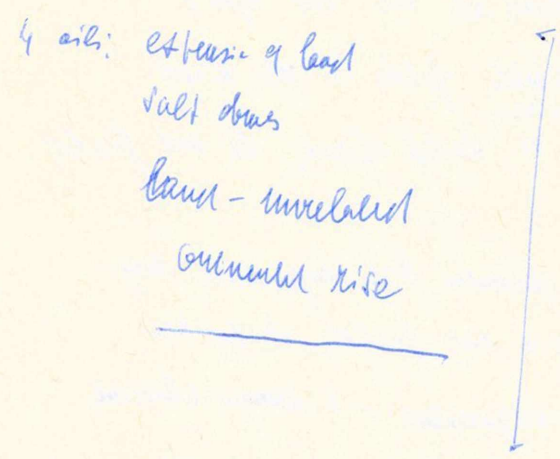 oili: extension of land
salt domes
land - unrelated
continental rise